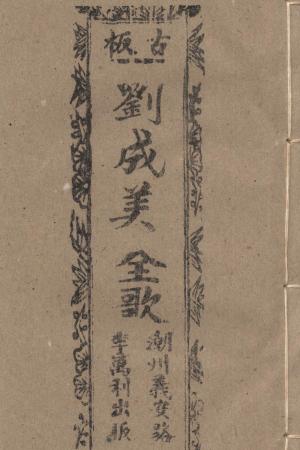 古板
劉成美全歌
潮州義安路
李萬利出版